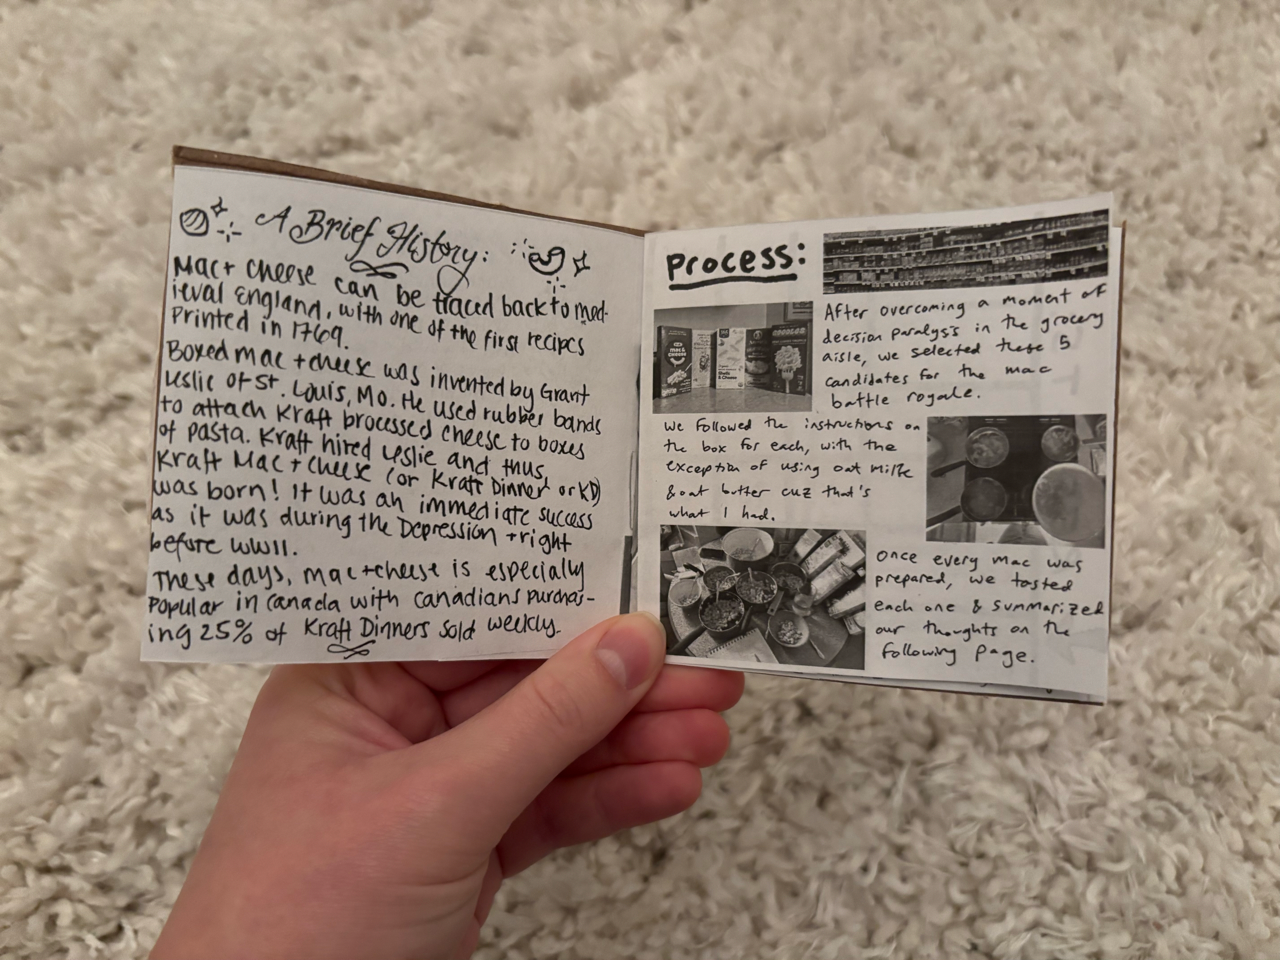 A Brief History:
Mac + cheese can be traced back to med-
ieval England, with one of the first recipes
printed in 1769.
Boxed mac + cheese was invented by Grant
Leslie of St. Louis, Mo. He used rubber bands
to attach Kraft processed cheese to boxes
of pasta. Kraft hired Leslie and thus,
Kraft Mac + cheese (or Kraft Dinner, or KD)
was born! It was an immediate success
as it was during the Depression + right
before WWII.
These days, mac + cheese is especially
popular in Canada with Canadians purchas-
ing 25% of Kraft Dinners sold weekly.
Process:
After overcoming a moment of
decision paralysis in the grocery
aisle, we selected these 5
candidates for the mac
battle royale.
We followed the instructions on
the box for each, with the
exception of using oat milk
& oat butter cuz that's
what I had.
Once every mac was
prepared, we tasted
each one & summarized
our thoughts on the
following page.